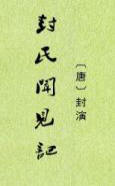 封氏聞見記
〔唐〕封演